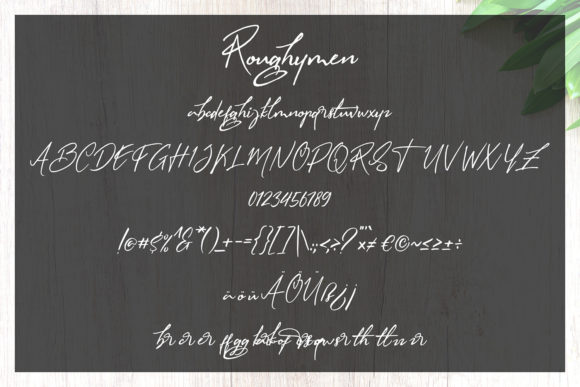 Roughymen
abcdefghijklmnopqrstuvwxyz
ABCDEFGHIJKLMNOPQRSTUVWXYZ
0123456789
!@#$%^&*()_+-={}[]|\:;<,>.?"'`×≠€©~≤≥±÷
äöüÄÖÜßij